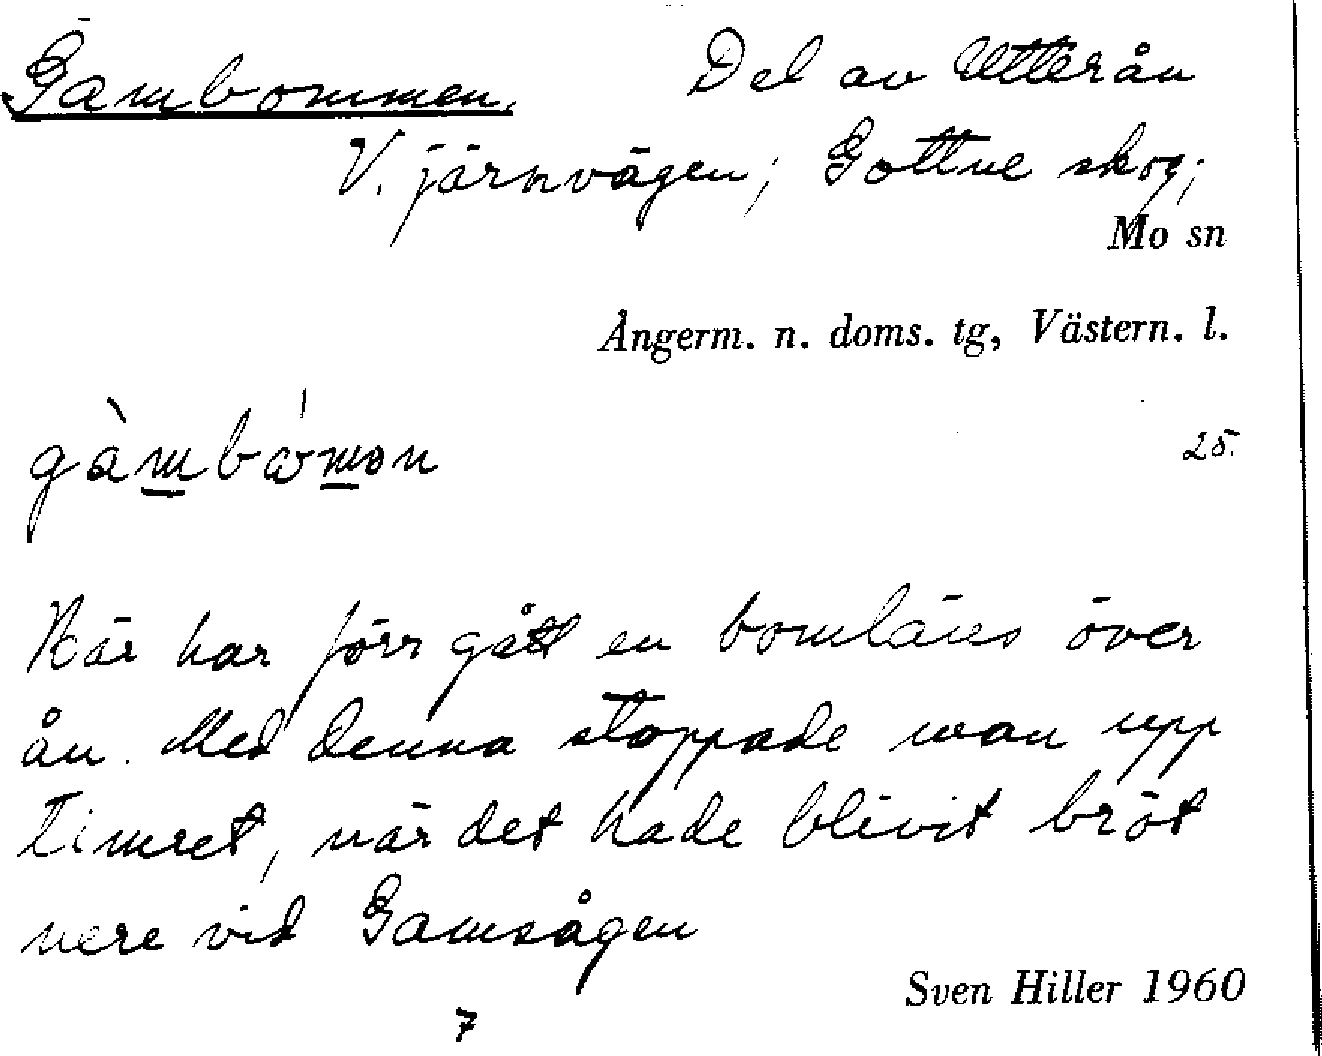 Gambommen.
Del av Utterån
V. järnvägen; Gottne skog;
Mo sn
Ångerm. n. doms. tg, Västern. l.
25.
Här har förr gått en bomläns över
ån. Med denna stoppade man upp
timret, när det hade blivit bröt
nere vid Gamsågen
Sven Hiller 1960
7